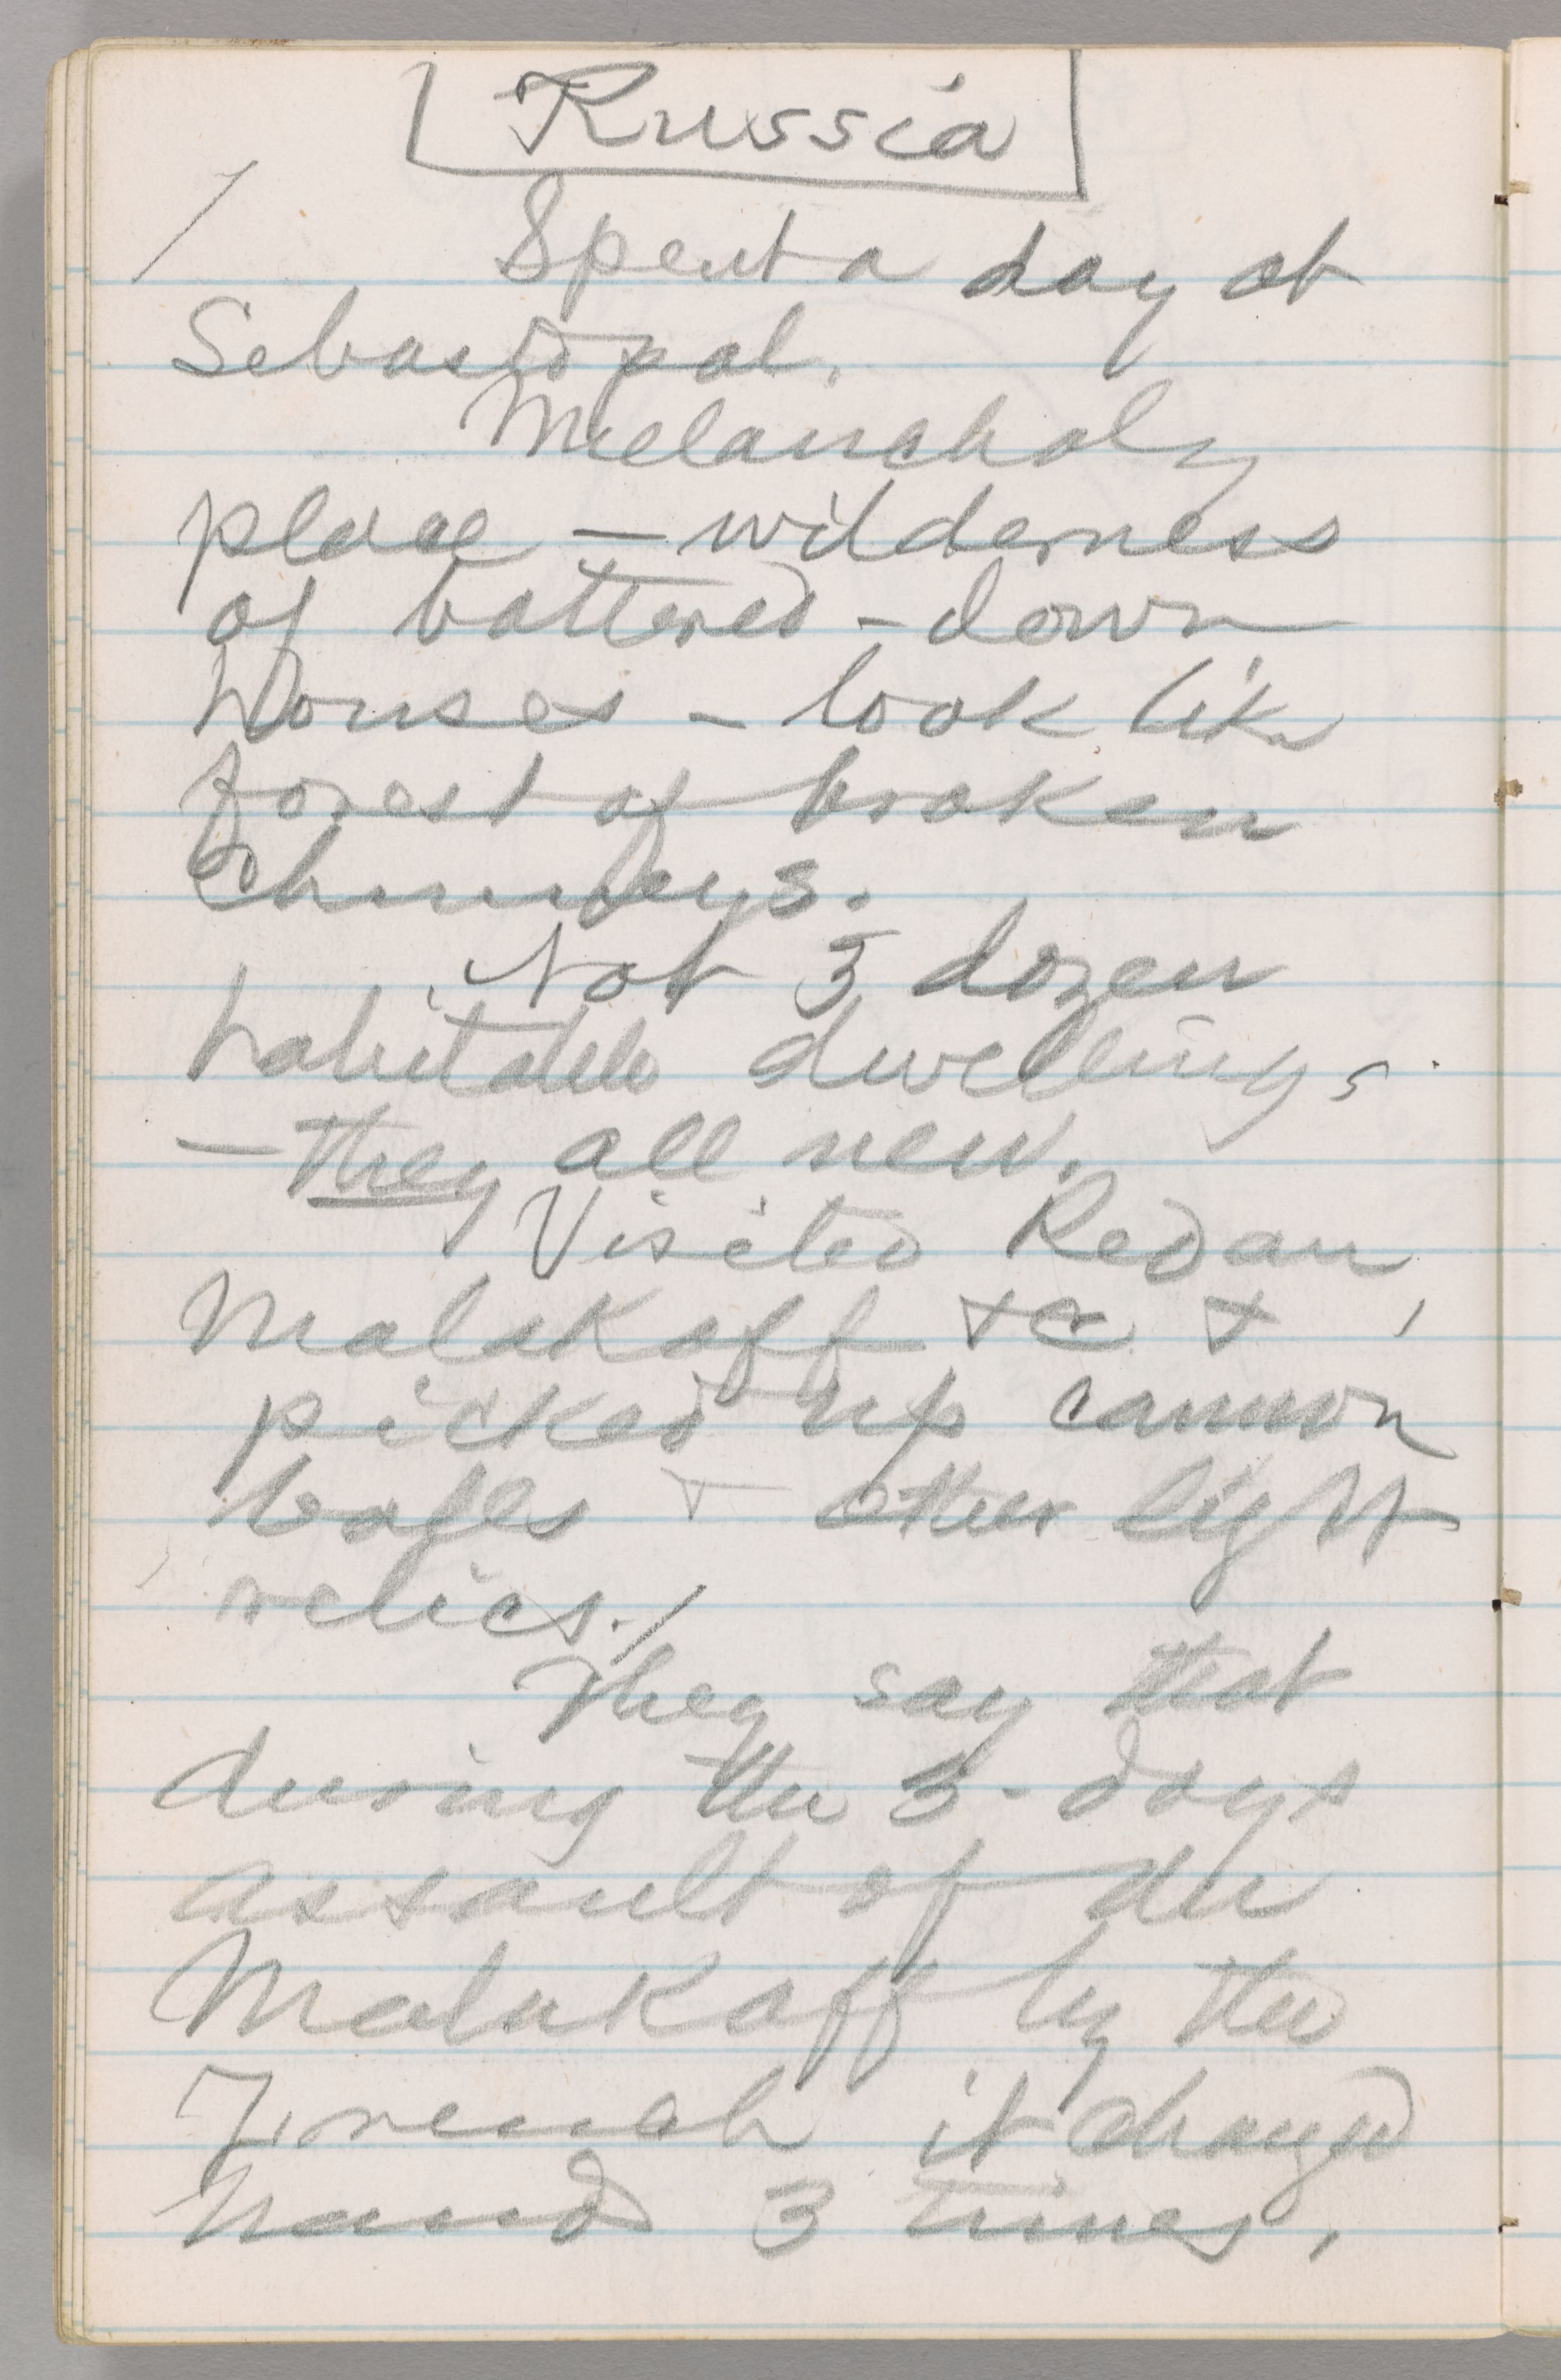 Russia
Spent a day at
Sebastopol.
Melancholy
place — wilderness
of battered-down
houses – look like
forest of broken
chimneys.
Not 3 dozen
habitable dwellings
— they all new.
Visited Redan,
Malakoff &c &
picked up cannon
balls & other light
relics./
They say that
during the 3-days
assault of the
Malakoff by the
French it changed
hands 3 times.